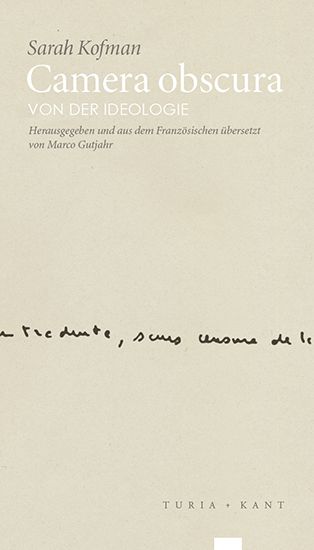 Sarah Kofman
Camera obscura
VON DER IDEOLOGIE
Herausgegeben und aus dem Französischen übersetzt
von Marco Gutjahr
sans censure de
TURIA + KANT